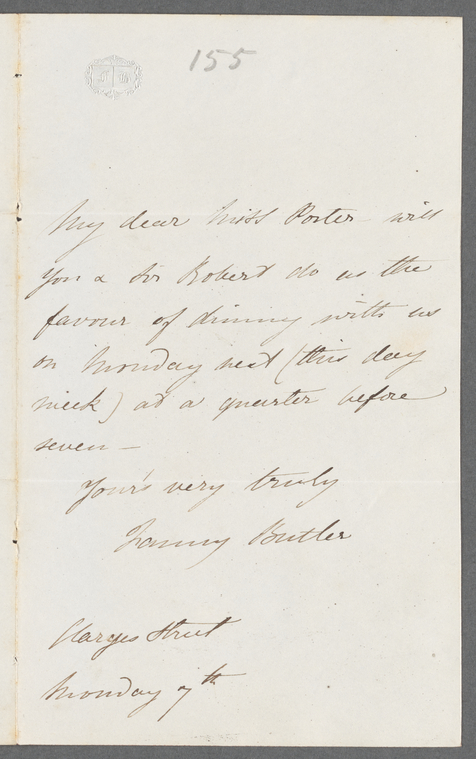 155
My dear Miss Porter will
you & Sir Robert do us the
favour of dining with us
on Monday next (this day
week) at a quarter before
seven —
Your's very truly
Fanny Butler
Clarges Street
Monday 7th